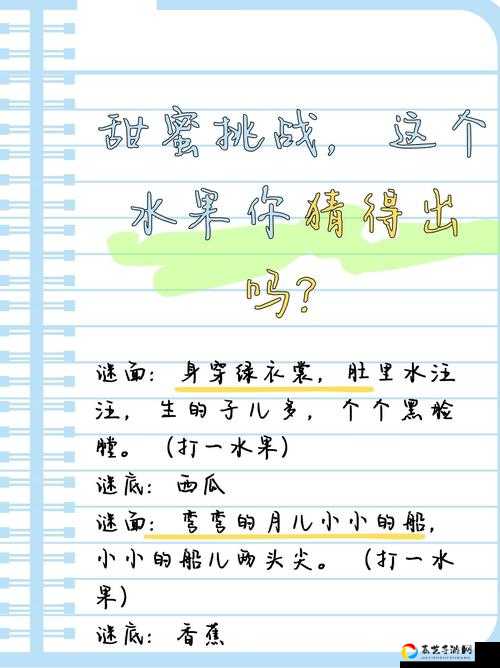 甜蜜挑战，这个
水果你猜得出
吗?
谜面：身穿绿衣裳，肚里水汪
汪，生的子儿多，个个黑脸
膛。（打一水果）
谜底：西瓜
谜面：弯弯的月儿小小的船，
小小的船儿两头尖。（打一水
果）
谜底：香蕉